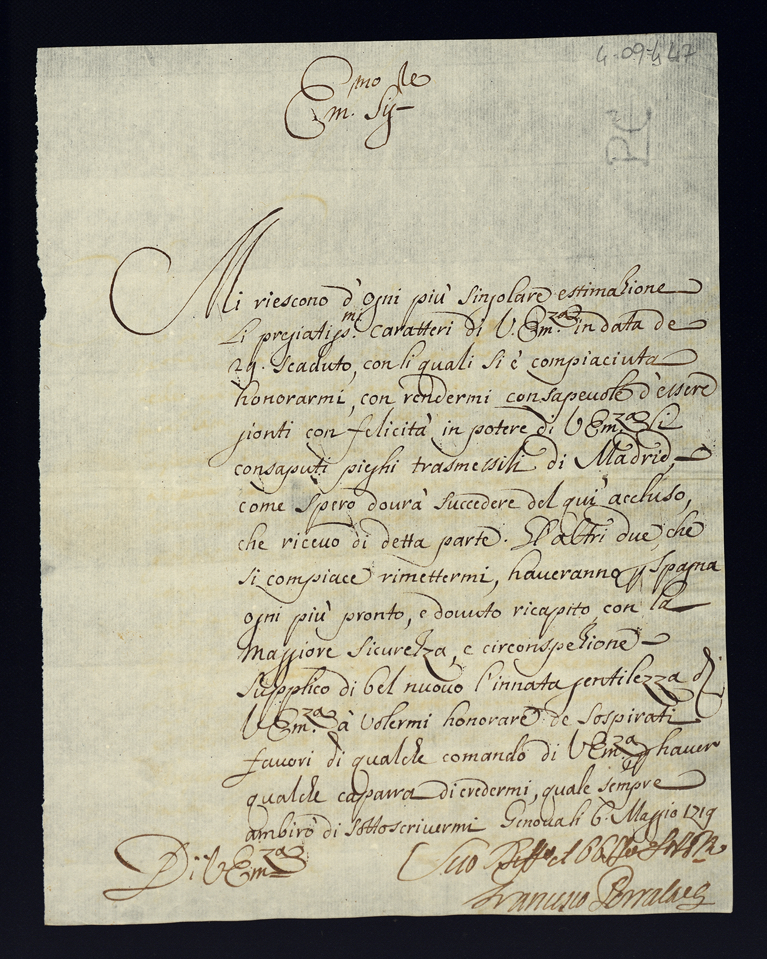 4-09-4 47
Em.mo Sig.re
Mi riescono d'ogni più singolare estimazione
li pregiatiss.mi caratteri di V. Em.za in data de
29. scaduto, con li quali si è compiaciuta
honorarmi, con rendermi consapeuole d'essere
gionti con felicità in potere di V Em.za li
consaputi pieghi trasmessili di Madrid,
come spero dourà succedere del qui accluso,
che riceuo di detta parte. Gl'altri due, che
si compiace rimettermi, haueranno p Spagna
ogni più pronto, e douuto ricapito con la
maggiore sicurezza, e circonspezione
supplico di bel nuouo l'innata gentilezza di
V Em.za à volermi honorare de sospirati
fauori di qualche comando di V Em.za p hauer
qualche caparra di credermi, quale sempre
ambirò di sottoscriuermi Genoua li 6. Maggio 1719
Di V Em.za
Suo
Francisco